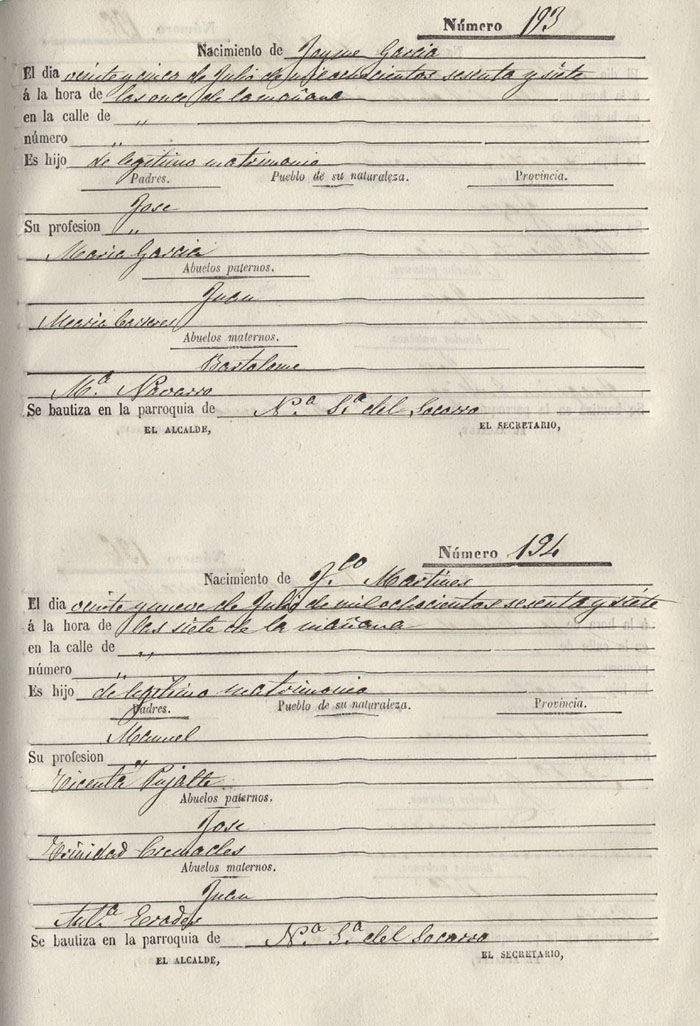 Número 193
Nacimiento de Jayme Garcia
El dia veinte y cinco de Julio de mil ochocientos sesenta y siete
á la hora de las once de la mañana
en la calle de „
número „
Es hijo de legitimo matrimonio
Padres. Pueblo de su naturaleza. Provincia.
Jose
Su profesion „
Maria Garcia
Abuelos paternos.
Juan
Maria Carreres
Abuelos maternos.
Bartolome
M.ª Navarro
Se bautiza en la parroquia de N.ª S.ª del Socorro
EL ALCALDE, EL SECRETARIO,
Número 194
Nacimiento de F.co Martines
El dia veinte y nueve de Julio de mil ochocientos sesenta y siete
á la hora de las siete de la mañana
en la calle de „
número „
Es hijo de legitimo matrimonio
Padres. Pueblo de su naturaleza. Provincia.
Manuel
Su profesion „
Vicenta Pujalte
Abuelos paternos.
Jose
Trinidad Cremades
Abuelos maternos.
Juan
Ant.ª
Se bautiza en la parroquia de N.ª S.ª del Socorro
EL ALCALDE, EL SECRETARIO,